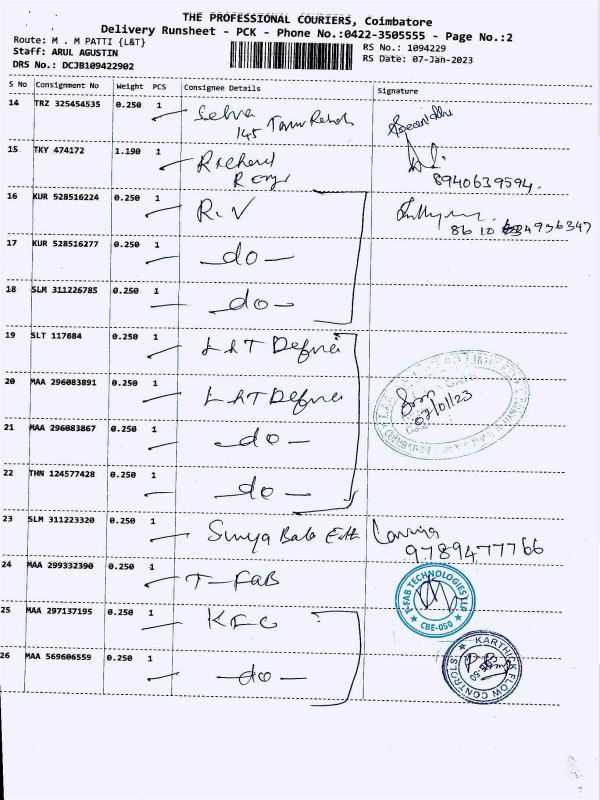 THE PROFESSIONAL COURIERS, Coimbatore
Delivery Runsheet - PCK - Phone No.:0422-3505555 - Page No.:2
Route: M . M PATTI {L&T}
Staff: ARUL AGUSTIN
DRS No.: DCJB109422902
RS No.: 1094229
RS Date: 07-Jan-2023
S No Consignment No Weight PCS Consignee Details Signature
14 TRZ 325454535 0.250 1 Selva
145
15 TKY 474172 1.190 1 Richard
Roy
8940639594.
16 KUR 528516224 0.250 1 R.V
17 KUR 528516277 0.250 1 -do-
18 SLM 311226785 0.250 1 -do-
19 SLT 117684 0.250 1 L&T Defnce
20 MAA 296083891 0.250 1 L&T Defnce
07/01/23
21 MAA 296083867 0.250 1 -do-
22 THN 124577428 0.250 1 -do-
23 SLM 311223320 0.250 1 Surya Bala
9789477766
24 MAA 299332390 0.250 1 T-FaB
T-FAB TECHNOLOGIES LLP
CBE-050
25 MAA 297137195 0.250 1 KFC
26 MAA 569606559 0.250 1 -do-
KARTHICK FLOW CONTROLS